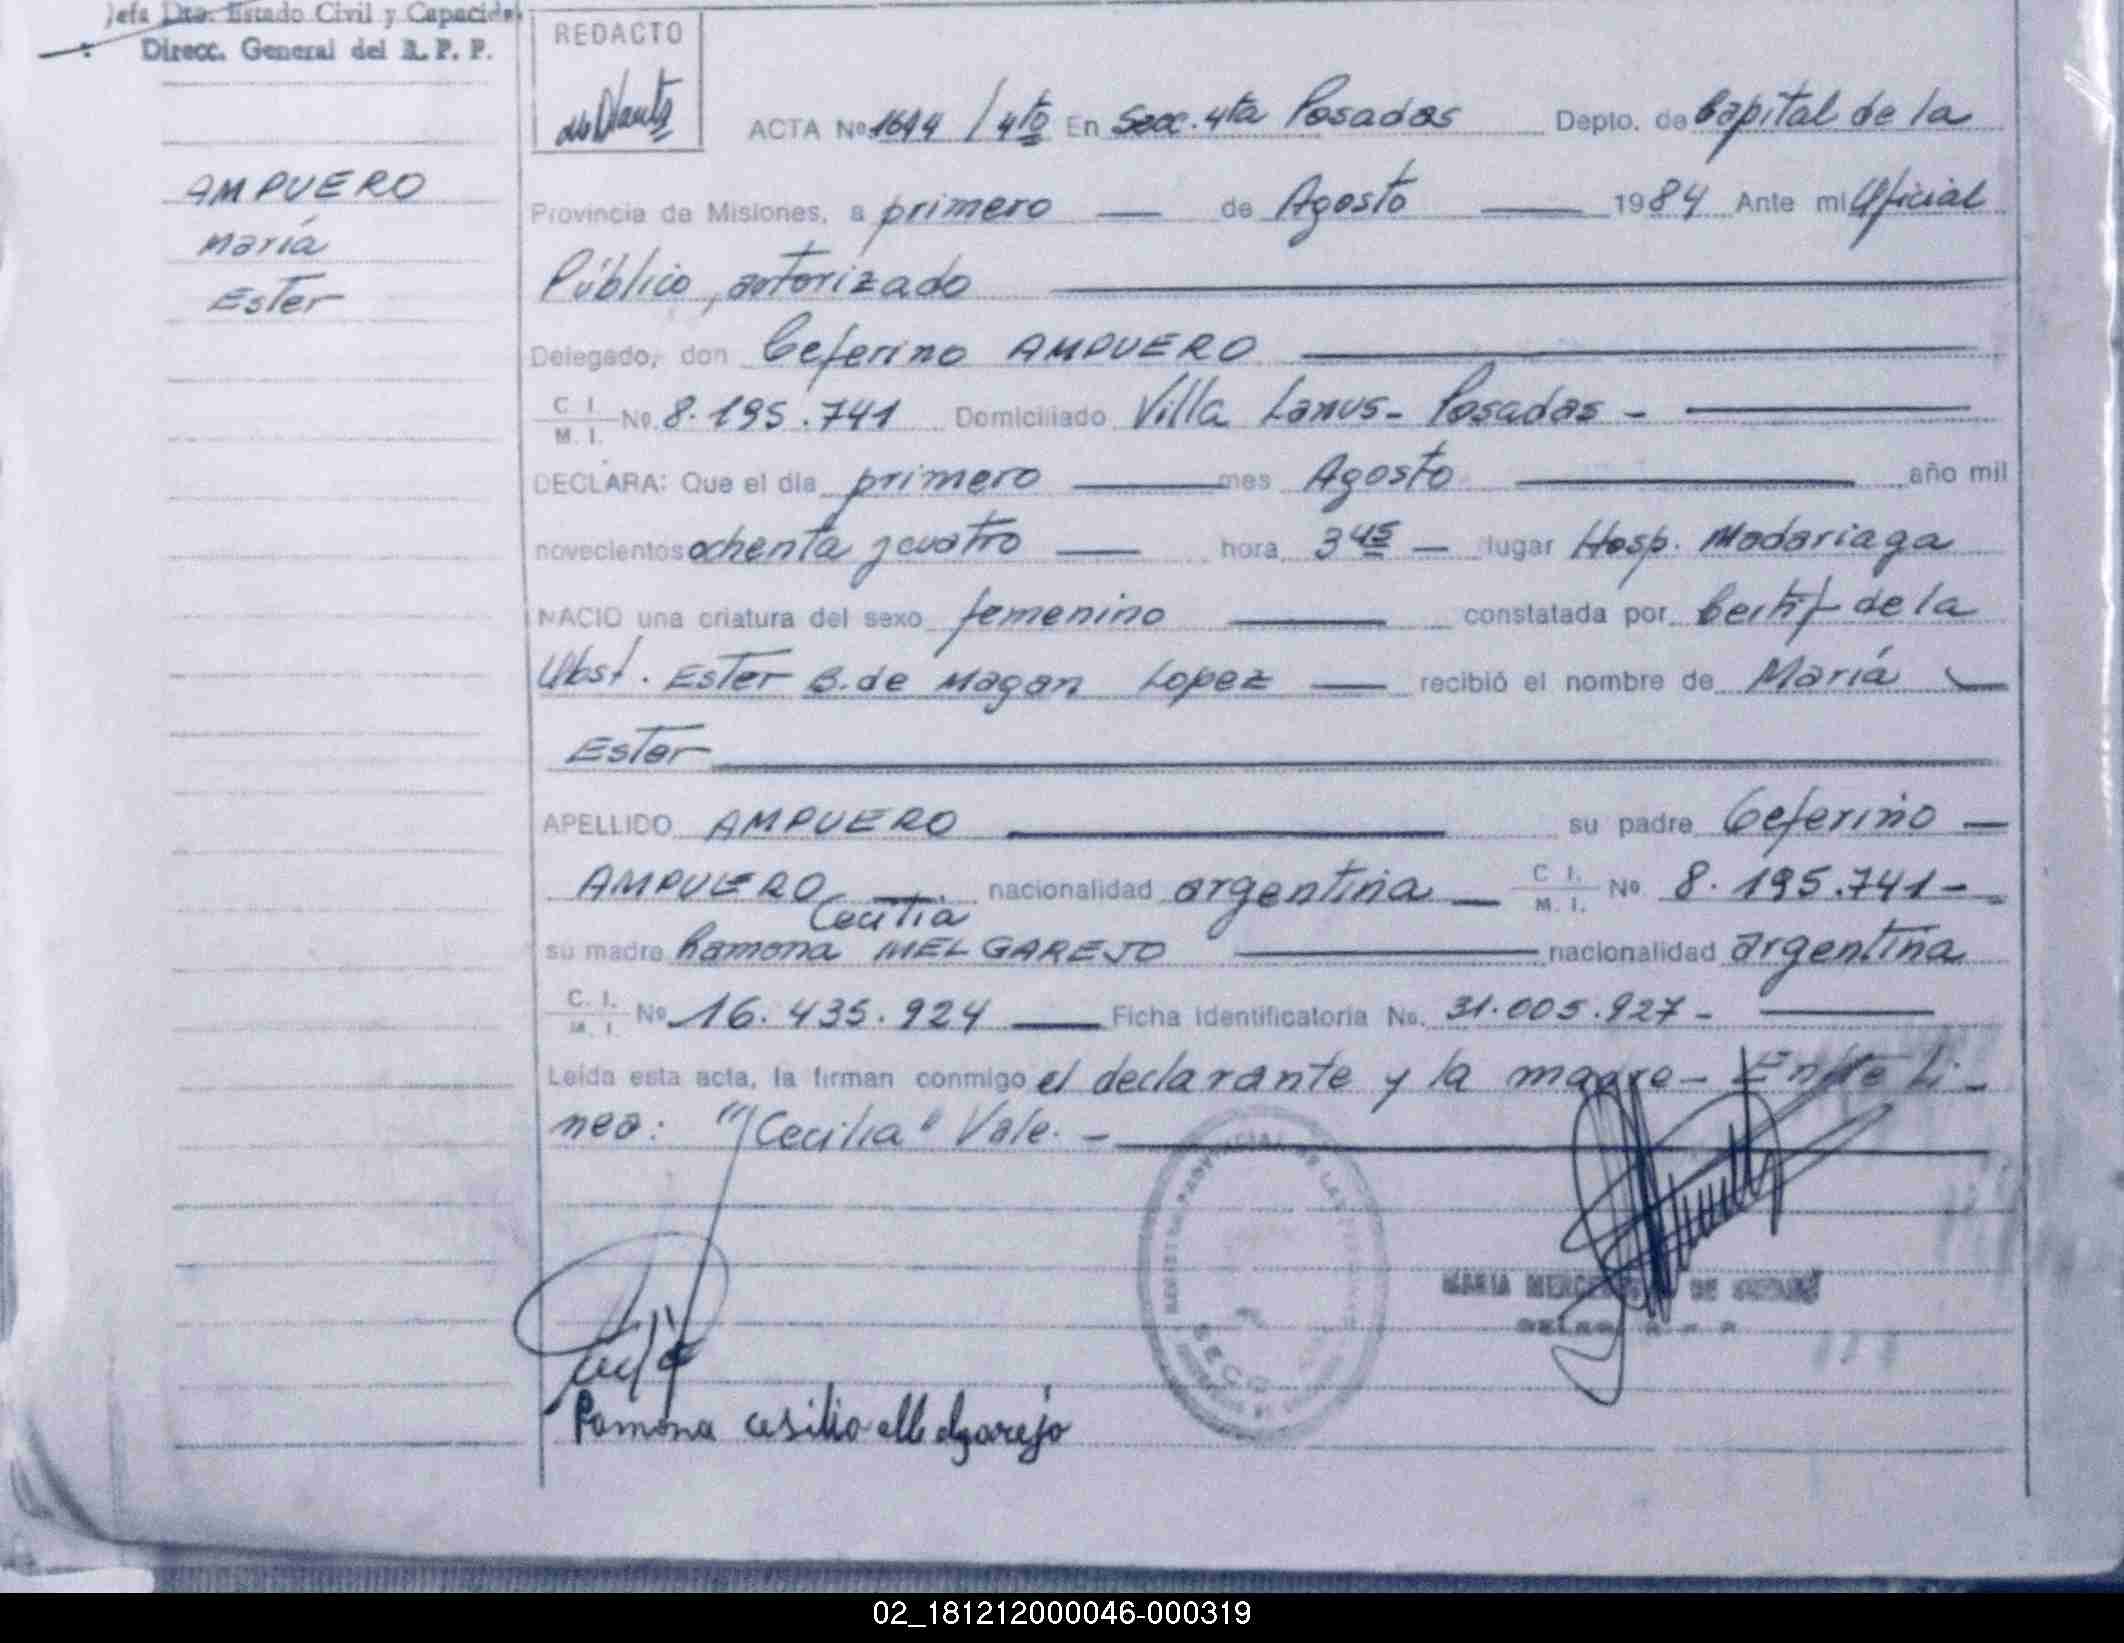 Jefa Dto. Estado Civil y Capacidad
Direcc. General del R. P. P.
REDACTO
ACTA Nº 1644 / 4to En Secc. 4ta Posadas Depto. de Capital de la
AMPUERO
María
Ester
Provincia de Misiones, a primero — de Agosto — 1984 Ante mi Oficial
Público, autorizado
Delegado, don Ceferino AMPUERO
C. I. M. I. Nº 8.195.741 Domiciliado Villa Lanus - Posadas -
DECLARA: Que el dia primero — mes Agosto — año mil
novecientos ochenta y cuatro — hora 3 45 — lugar Hosp. Madariaga
NACIO una criatura del sexo femenino — constatada por Certif de la
Obst. Ester B. de Magan Lopez — recibió el nombre de María —
Ester
APELLIDO AMPUERO — su padre Ceferino —
AMPUERO — nacionalidad argentina — C. I. M. I. Nº 8.195.741 -
Cecilia
su madre Ramona MELGAREJO — nacionalidad argentina
C. I. M. I. Nº 16.435.924 — Ficha identificatoria No. 31.005.927 -
Leída esta acta, la firman conmigo el declarante y la madre - Entre Li-
nea: "Cecilia" Vale. -
MARIA MERCE DE
SECC
Ramona cesilia Melgarejo
02_181212000046-000319